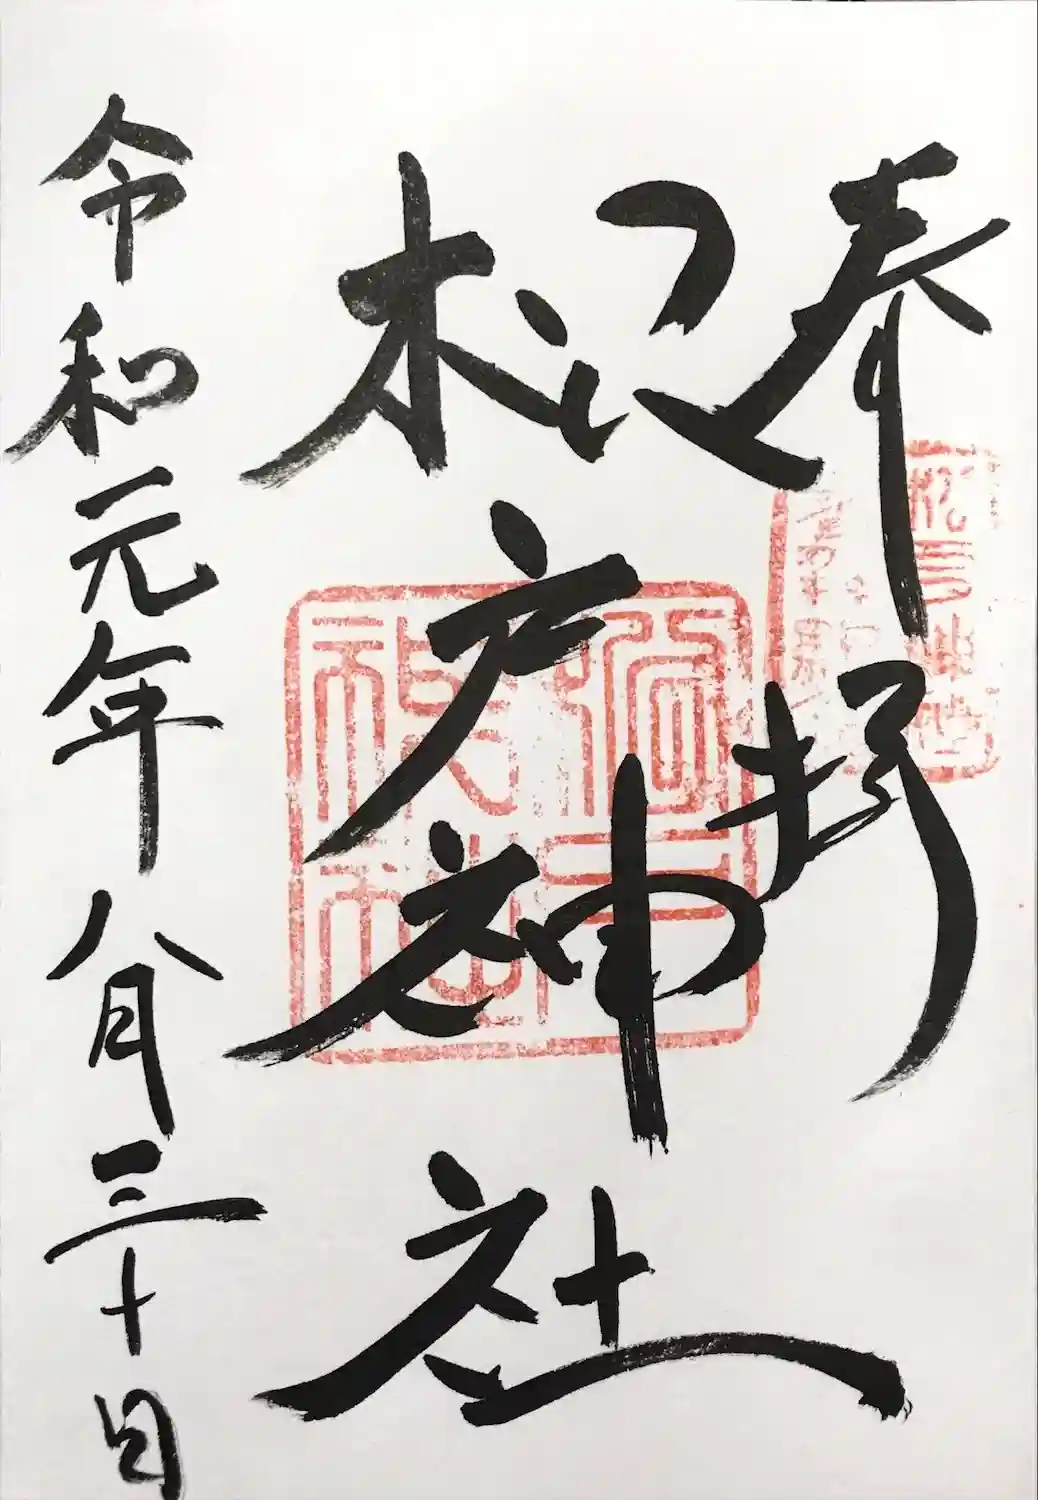 奉拝
松戸神社
令和元年八月三十日
松戸
神社